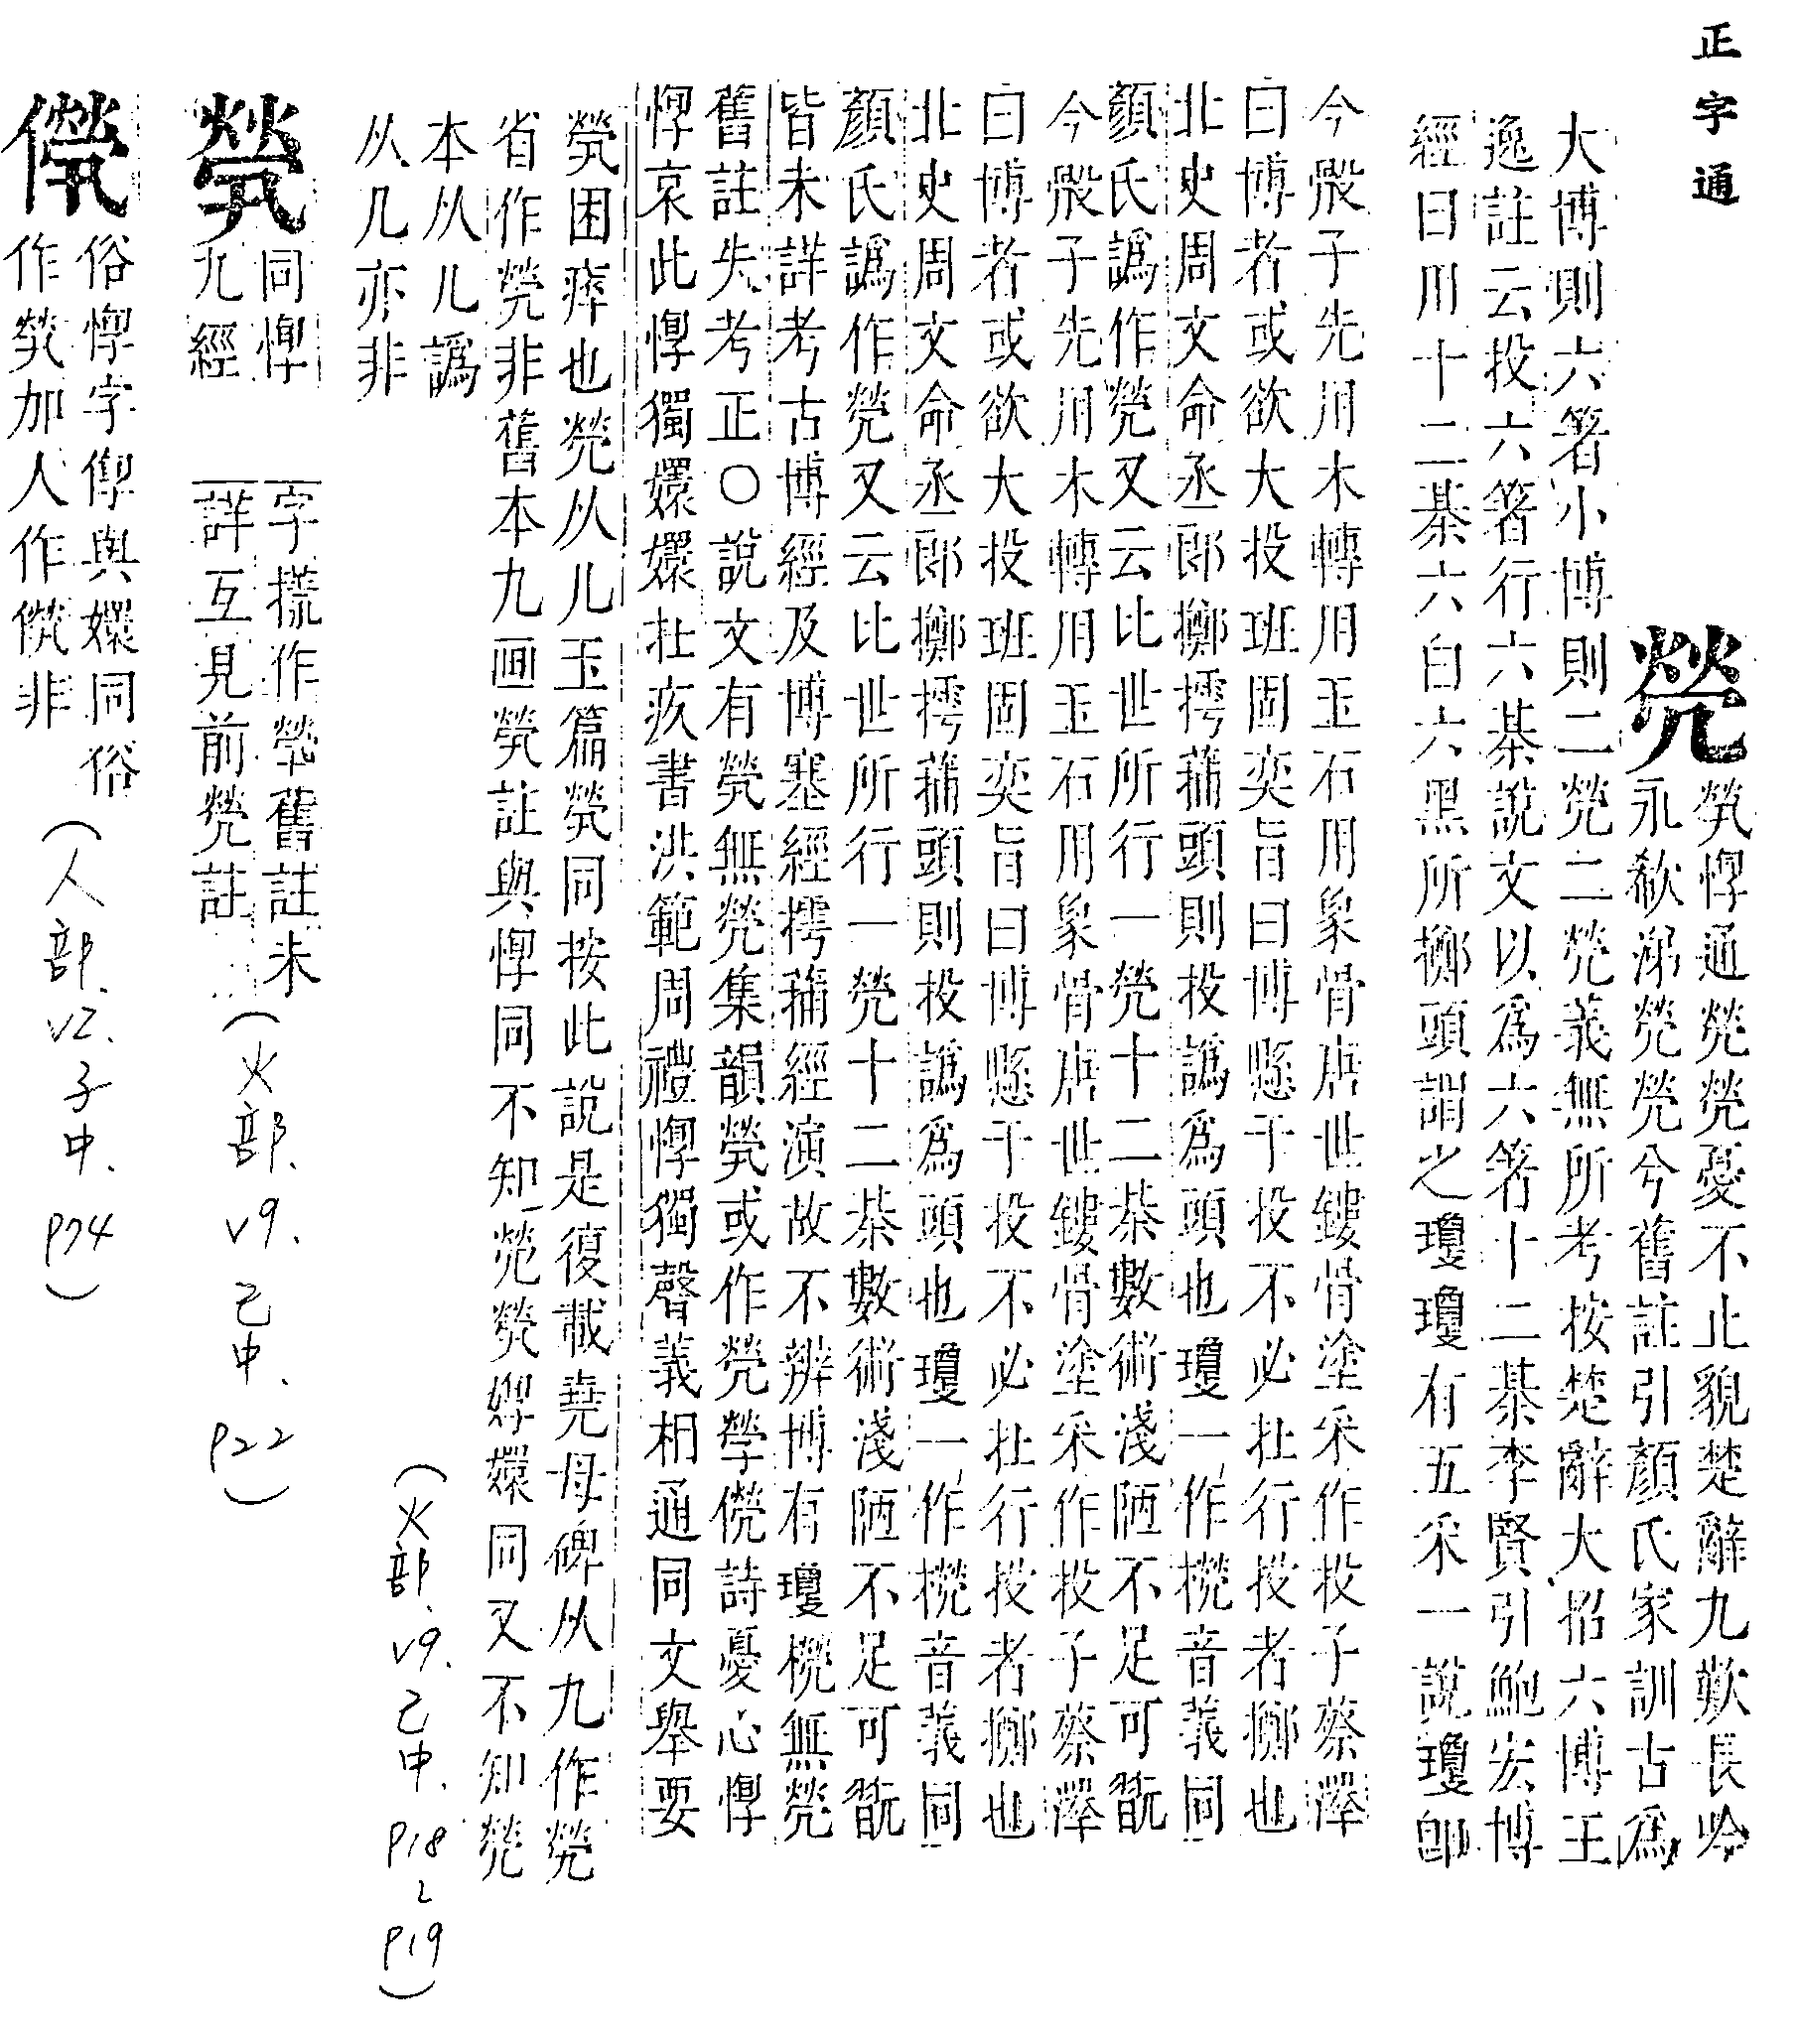 正字通
煢
㷀惸通煢煢憂不止貌楚辭九歎長吟
永欷涕煢煢兮舊註引顏氏家訓古為
大博則六箸小博則二煢二煢義無所考按楚辭大招六博王
逸註云投六箸行六棊說文以為六箸十二棊李賢引鮑宏博
經曰用十二棊六白六黑所擲頭謂之瓊瓊有五采一說瓊卽
今骰子先用木轉用玉石用象骨唐世鏤骨塗采作投子蔡澤
曰博者或欲大投班固奕旨曰博懸于投不必在行投者擲也
北史周文命丞郎擲摴蒱頭則投譌為頭也瓊一作橩音義同
顏氏譌作煢又云比世所行一煢十二棊數術淺陋不足可翫
今骰子先用木轉用玉石用象骨唐世鏤骨塗采作投子蔡澤
曰博者或欲大投班固奕旨曰博懸于投不必在行投者擲也
北史周文命丞郎擲摴蒱頭則投譌為頭也瓊一作橩音義同
顏氏譌作煢又云比世所行一煢十二棊數術淺陋不足可翫
皆未詳考古博經及博塞經摴蒱經演故不辨博有瓊橩無煢
舊註失考正○說文有㷀無煢集韻㷀或作煢㷀儝詩憂心惸
惸哀此惸獨嬛嬛在疚書洪範周禮惸獨聲義相通同文舉要
㷀困瘁也煢从儿玉篇㷀同按此說是復載堯母碑从九作煢
省作煢非舊本九画㷀註與惸同不知煢㷀㛦嬛同又不知煢
本从儿譌
从几亦非
(火部、v9、己中、P18~P19)
㷀
同惸
九經
字㨾作㷀舊註未
詳互見前煢註
(火部、v9、己中、P22)
儝
俗惸字僔與嬛同俗
作㷀加人作儝非
(人部、v2、子中、P74)